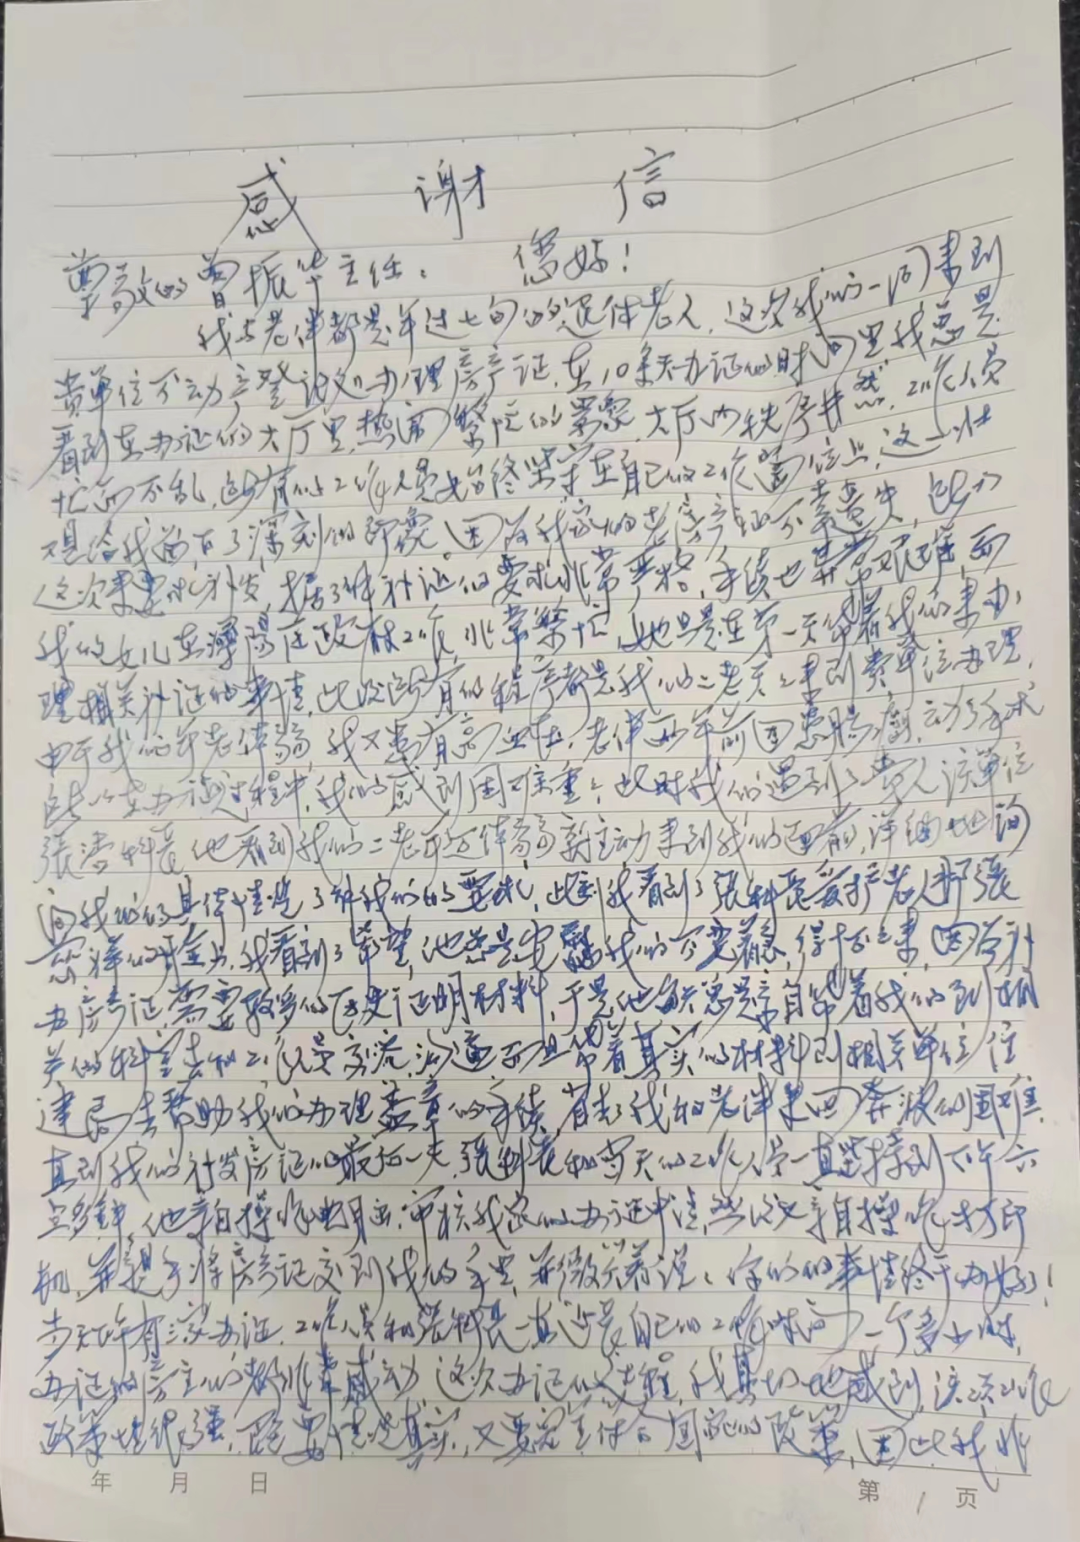 感 谢 信
尊敬的曾振华主任: 您好!
我与老伴都是年过七旬的退休老人,这次我们一同来到
贵单位不动产登记处办理房产证,在10余天办证的时间里,我总是
看到在办证的大厅里,热闹繁忙的景象,大厅内秩序井然,工作人员
忙而不乱,所有的工作人员始终坚守在自己的工作岗位上,这一
给我留下了深刻的印象。因为我家的老房产证不慎遗失,所以
这次来要求补发,据了解补证的要求非常严格,手续也异常艰难,而
我的女儿在浔阳区政府工作,非常繁忙,她只是在第一天带着我们来办
理相关补证的事情,此后所有的程序都是我们二老天天来到贵单位办理,
由于我们年老体弱,我又患有高血压,老伴两年前因患肠癌,动了手术
所以在办证过程中,我们感到困难重重,此时我们遇到了贵人该单位
张涛科长,他看到我们二老年迈体弱主动来到我们面前,详细地询
问我们的具体情况,了解我们的要求,此刻我看到了张科长爱护老人那张
慈祥的脸,我看到了希望,他总是安慰我们不要着急,得慢慢来,因为补
办房产证,需要较多的证明材料,于是他总是亲自带着我们到相
关的科室去和工作人员交流沟通,而且带着真实的材料到相关单位住
建局去帮助我们办理盖章的手续,省去了我和老伴来回奔波的困难,
直到我们补发房证的最后一天,张科长和当天的工作人员一直坚持到下午六
点多钟,他亲自操作电脑,审核我家的办证申请,然后又亲自操作打印
机,并亲手将房产证交到我们的手里,并微笑着说:你们的事情终于办好了!
当天下午有三家办证,工作人员和张科长,延长自己的工作时间一个多小时,
办证的房主们都非常感动,这次办证的过程,我真切地感到,该项工作
政策性很强,既要情况真实,又要完全符合国家的政策,因此,我非
年 月 日
第 1 页